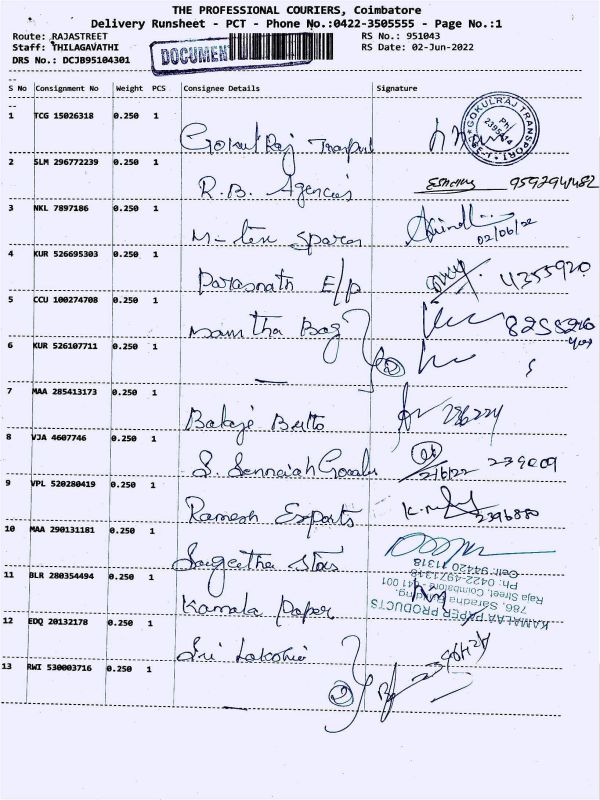 THE PROFESSIONAL COURIERS, Coimbatore
Delivery Runsheet - PCT - Phone No.:0422-3505555 - Page No.:1
Route: RAJASTREET RS No.: 951043
Staff: THILAGAVATHI DOCUMENT RS Date: 02-Jun-2022
DRS No.: DCJB95104301
S No Consignment No Weight PCS Consignee Details Signature
1 TCG 15026318 0.250 1
GOKULRAJ TRANSPORT
Gokul Raj
2 SLM 296772239 0.250 1
R.B. Agencies
3 NKL 7897186 0.250 1
M-tex Spares 02/06/22
4 KUR 526695303 0.250 1
Parasnath E/p 4355920
5 CCU 100274708 0.250 1
Namitha Bag
6 KUR 526107711 0.250 1
2
7 MAA 285413173 0.250 1
Balaji
8 VJA 4607746 0.250 1
S. Sennaiah 2/6/22 239009
9 VPL 520280419 0.250 1
Ramesh Exports 2396880
10 MAA 290131181 0.250 1
Sangeetha Stores
11 BLR 280354494 0.250 1
Kamala Paper
KAMALAA PAPER PRODUCTS
786, Saradha Building,
Raja Street, Coimbatore - 641 001
Ph: 0422-4971318
Cell: 94420 11318
12 EDQ 20132178 0.250 1
Sri Lakshmi
13 RWI 530003716 0.250 1
2